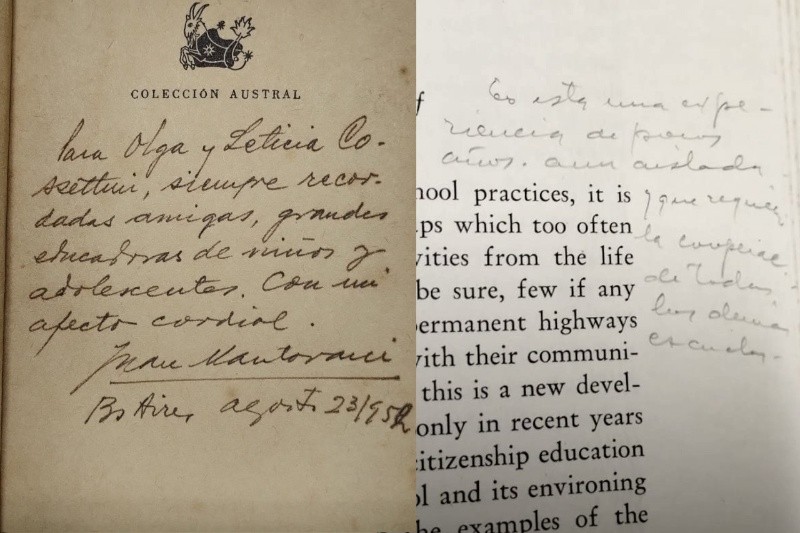 COLECCIÓN AUSTRAL
Para Olga y Leticia Co-
ssettini, siempre recor-
dadas amigas, grandes
educadoras de niños y
adolescentes. Con mi
afecto cordial.
Juan Mantovani
Bs Aires agosto 23/95
f
Es esta una expe-
riencia de pocos
años. aun aislada
y que requier
la cooperac
de todas
las demás
escuelas.
hool practices, it is
ps which too often
vities from the life
be sure, few if any
ermanent highways
ith their communi-
this is a new devel-
only in recent years
itizenship education
l and its environing
he examples of the